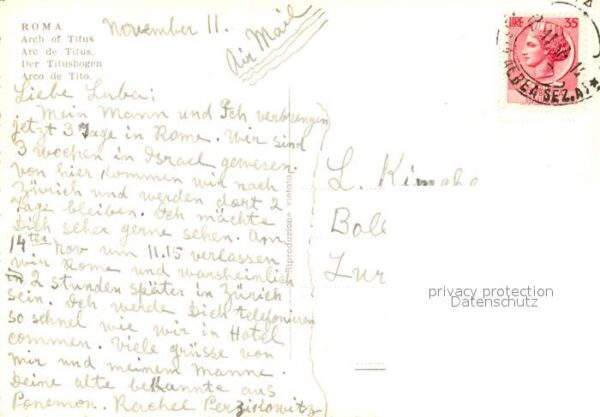 ROMA
Arch of Titus
Arc de Titus.
Der Titusbogen
Arco de Tito.
November 11.
Air Mail
LIRE 35
Liebe Luba:
Mein Mann und Ich verbrengen
jetzt 3 Tage in Rome. Wir sind
3 wochen in Israel gewesen.
Von hier kommen wir nach
Zürich und werden dort 2
Tage bleiben. Ich mächte
Dich seher gerne sehen. Am
14ten Nov um 11.15 verlassen
wir Rome und warsheinlich
in 2 stunden später in Zürich
sein. Ich werde Dich telefonieren
so schnel wie wir in Hotel
commen. Viele grüsse von
mir und meinem Manne.
Deine alte bekannte aus
Ponemon. Rachel Perziskowitz
L. Kimche
Riproduzione vietata
privacy protection
Datenschutz